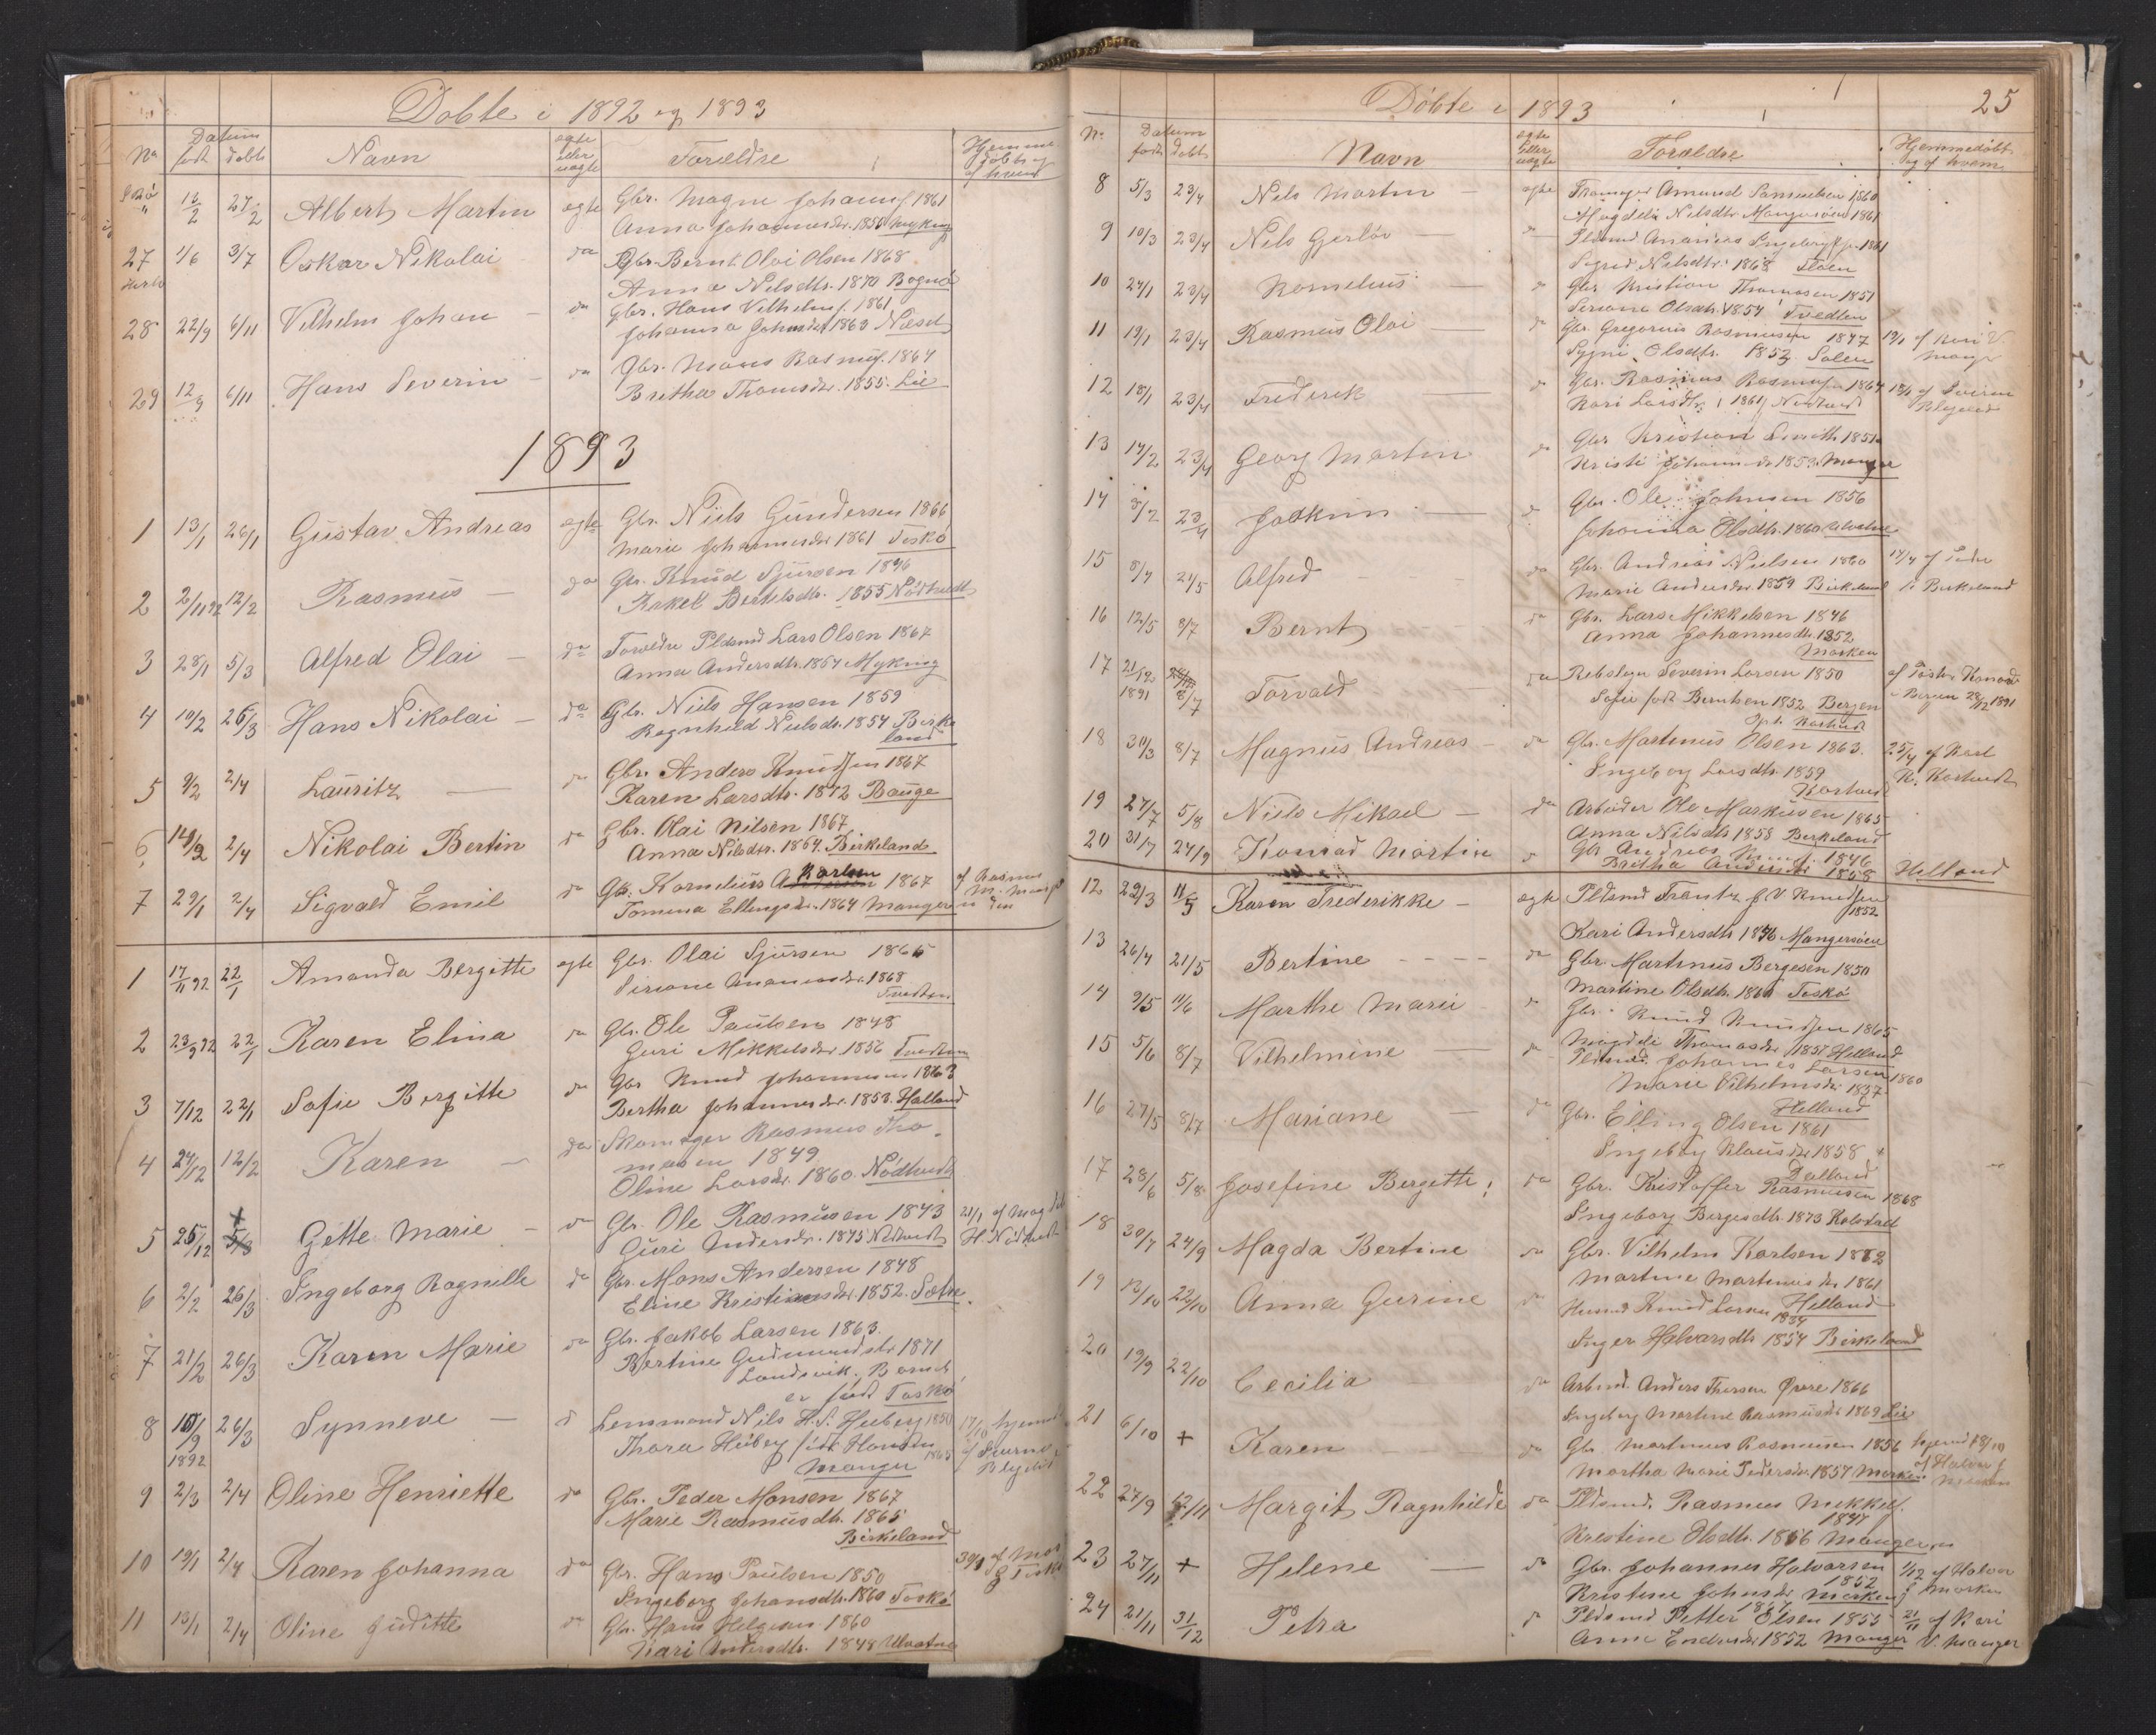 Døbte i 1892 og 1893
No Datum født døbt Navn egte eller uegte Forældre Hjemme døbt og af hvem
12/2 27/2 Albert Martin egte Gbr. Magne Johannesf. 1861
Anna Johannesdr. 1856 Myking
27 1/6 3/7 Oskar Nikolai da Gbr. Bernt Olai Olsen 1868
Anna Nelsdtr. 1870 Bognø
28 22/9 6/11 Vilhelm Johan - da Gbr. Hans Vilhelmsf. 1861
Johanna Johnsdtr 1863 Næset
29 12/9 6/11 Hans Severin - da Gbr. Mons Rasmusf. 1864
Bertha Thomsdr. 1855. Lie
1893
1 13/1 26/1 Gustav Andreas egte Gbr. Niels Gundersen 1866
Marie Johannesdr 1861 Toskø
2 2/11 92 12/2 Rasmus - da Gbr. Knud Sjursen 1846
Rakel Bertelsdtr. 1855 Nødtvedt
3 28/1 5/3 Alfred Olai - da Forældre Pldsmd Lars Olsen 1867
Anna Andersdtr. 1864 Myking
4 10/2 26/3 Hans Nikolai - da Gbr. Niels Hansen 1859
Ragnhild Nielsdr. 1854 Birke
land
5 9/2 2/4 Lauritz da Gbr. Anders Knudsen 1867
Karen Larsdtr. 1872 Bauge
6 2/4 Nikolai Bertin da Gbr. Olai Nilsen 1867
Anna Nilsdtr. 1864. Birkeland
7 29/1 2/4 Sigvald Emil da Gb. Kornelius Karlsen 1867 af Rasmus
Tomina Ellingsdr. 1864 Manger
1 17/11 92 22/1 Amanda Bergitte egte Gbr. Olai Sjursen 1865
Seriane Ananiasdr. 1868
Tvedten
2 23/9 92 22/1 Karen Elina da Gbr. Ole Paulsen 1848
Guri Mikkelsdr. 1856 Tvedten
3 7/12 22/1 Sofie Bergitte da Gbr Knud Johannesen 1863
Bertha Johannesdr. 1853. Halland
4 24/12 12/2 Karen - da Skomager Rasmus Tho-
masen 1849
Oline Larsdr. 1860. Nødtvedt
5 25/12 + 5/3 Gjette Marie - da Gbr. Ole Rasmusen 1843 21/1 af Magd
Guri Andersdr. 1845 Nødtvedt H. Nødtvedt
6 2/2 26/3 Ingeborg Ragnille da Gbr. Mons Andersen 1848
Eline Kristiansdr. 1852. Sætre
7 21/2 26/3 Karen Marie da Gbr. Jakob Larsen 1863.
Bertine Gudmundsdr 1871
Landsvik. Barnet
er født Toskø
8 10/9 1892 26/3 Synneve - d Lensmand Nils H. S. Heiberg 1850 17/10 hjemme
Thora Heiberg født Hansen 1865
Manger
9 2/3 2/4 Oline Henriette da Gbr. Peder Monsen 1867
Marie Rasmusdtr. 1865
Birkeland
10 19/1 2/4 Karen Johanna da Gbr. Hans Paulsen 1850
Ingeborg Johansdtr. 1860 Toskø
11 13/1 2/4 Oline Juditte da Gbr. Hans Helgesen 1860
Kari Andersdtr. 1848 Ulvatne
Døbte i 1893
25
No Datum født døbt Navn egte eller uegte Forældre Hjemmedøbt og af hvem
8 5/3 23/4 Nils Martin - egte Amund Samuelsen 1860
Magdeli Nilsdtr. Mangersøen 1861
9 10/3 23/4 Nils Gerløv - Pldsmd Ananias 1861
Sigrid Nilsdtr. 1868 Fløen
10 24/1 23/4 Kornelius Gbr Kristian Thomasen 1851
Seriane Olsdtr. 1854 Tvedten
11 19/1 23/4 Rasmus Olai - Gbr. Gregorius Rasmusen 1847 19/1 af Kari V.
Sygni Olsdtr. 1852 Solem Manger
12 18/1 23/4 Frederik Gbr. Rasmus Rasmusen 1864
Kari Larsdtr. 1861
13 14/2 23/4 Georg Martin Gbr Kristian Smith 1851
Kristi Johannesdr 1853. Manger
14 3/2 23/4 Joakim - Gbr. Ole Johnsen 1856
Johanna Olsdtr. 1860 Ulvatne
15 8/4 21/5 Alfred da Gbr. Andreas Nielsen 1860 14/4 af Peder
Marie Andersdr. 1859 Birkeland Birkeland
16 12/5 8/7 Bernt da Gbr. Lars Mikkelsen 1846
Anna Johannesdtr. 1852
Marken
17 21/12 1891 8/7 Torvald da Rebslager Severin Larsen 1850
Sofie født Berntsen 1852 Bergen Bergen 28/12 1891
18 30/3 8/7 Magnus Andreas - da Gbr. Martinus Olsen 1863. 25/4 af Karl
Ingeborg Larsdtr. 1859 K. Kartvedt
Kartvedt
19 27/7 5/8 Niels Mikael - da Arbeider Ole Markusen 1865
Anna Nilsdtr 1858 Birkeland
20 31/7 24/9 Konrad Martin Gbr Andreas 1846
Bertha Andersdr 1858 Helland
12 29/3 11/5 Karen Frederikke - egte Pldsmd Frantz J. V. Knudsen
1852
Kari Andersdtr 1856 Mangersøen
13 26/4 21/5 Bertine - - - - da Gbr Martinus Bergesen 1850
Martine Olsdtr. 1861 Toskø
14 9/5 11/6 Marthe Marie Gbr. Knud Knudsen 1865
Magdeli Thomasdr 1857 Helland
15 5/6 8/7 Vilhelmine - da Pldsmd. Johannes Larsen 1860
Marie Vilhelmsdr. 1857
Helland
16 27/5 8/7 Mariane - da Gbr. Elling Olsen 1861
Ingeborg Klausdr 1858
Dalland
17 28/6 5/8 Josefine Bergette da Gbr. Kristoffer Rasmusen 1868
Ingeborg Bergesdtr. 1873
18 30/7 24/9 Magda Bertine da Gbr. Vilhelm Karlsen 1862
Martine Martinusdr 1861
Helland
19 13/10 22/10 Anna Gurine da Husmd Knud Larsen 1854
Inger Halvarsdtr 1854 Birkeland
20 19/9 22/10 Cecilia da Arbmd. Anders Thorsen Øvre 1866
Ingeborg Martine Rasmusdr 1869 Lie
21 6/10 + Karen da Gbr. Martinus Rasmusen 1856 hjemd. 18/10
Martha Marie Pedersdr. 1857 Marken af Halvor
22 27/9 12/11 Margit Ragnhilde da Pldsmd. Rasmus Mikkels.
1847
Kristine Olsdtr. 1856 Manger
23 27/11 + Helene - da Gbr. Johannes Halvarsen 1/12 af Halvor
1852
Kristine Johnsdr Marken Marken
24 21/11 31/12 Petra Pldsmd Petter Olsen 1855 21/11 af Kari
Anne Endresdr. 1852 Manger V. Manger